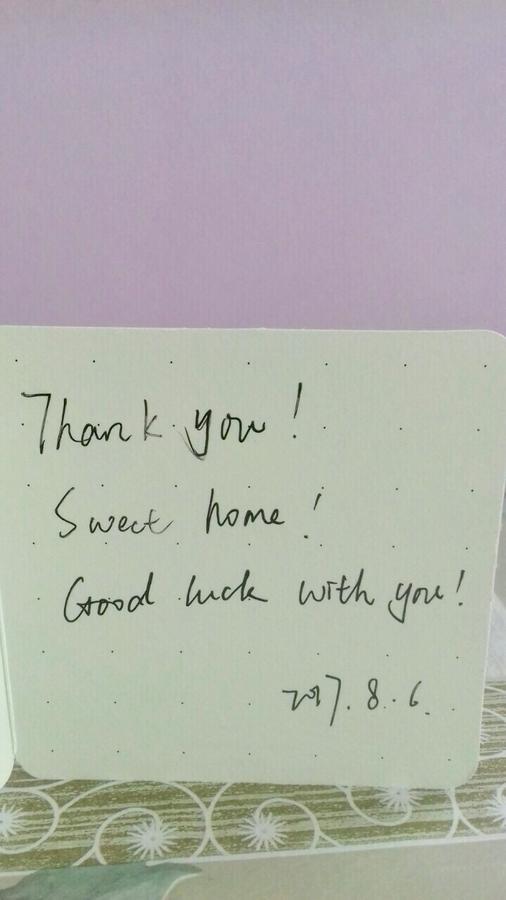 Thank you!
Sweet home!
Good luck with you!
2017.8.6.